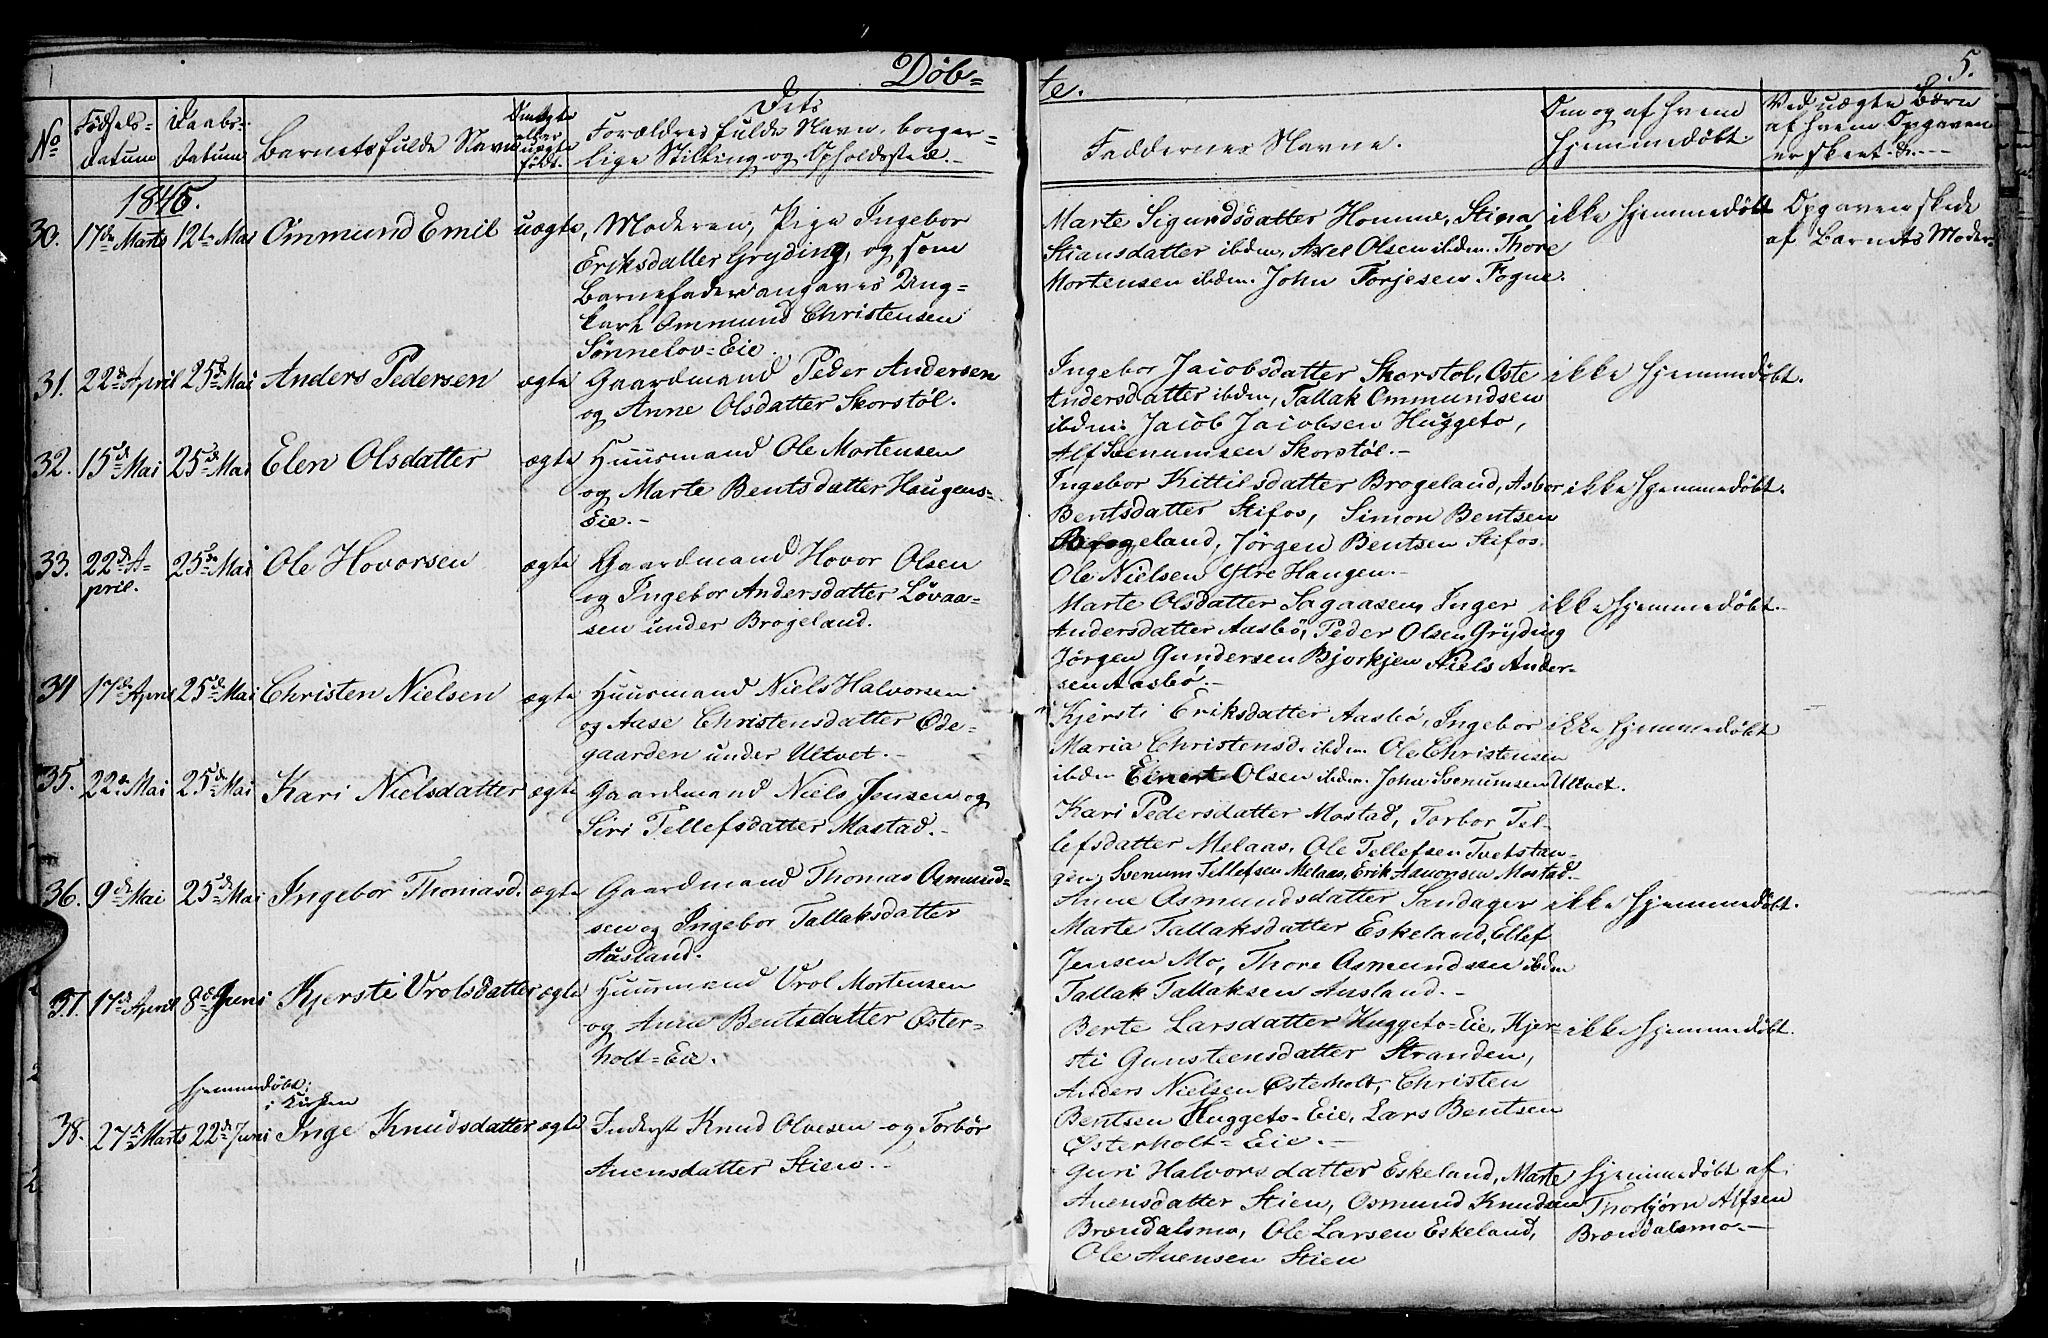 Døb=
te.
5.
No
Fødsels-
datum
Daabs-
datum
Barnets fulde Navn
Om ægte
eller
uægte
født.
Dets
Forældres fulde Navn, borger-
lige Stilling og Opholdssted.
Faddernes Navne.
Om og af hvem
hjemmedøbt.
Ved uægte Børn
af hvem Opgaven
er skeet &.
1845.
30. 17de Marts 12te Mai Ommund Emil uægte, Moderen, Pige Ingebor
Eriksdatter Gryding, og som
Barnefader angaves Ung-
karl Ommund Christensen
Sönnelov=Eie.
Marte Sigundsdatter Homme, Stina
Stiansdatter ibdm, Axel Olsen ibdm. Thore
Mortensen ibdm. John Torjesen Fogne.
ikke hjemmedöbt
Opgaven skede
af Barnets Moder.
31. 22de April 25de Mai Anders Pedersen ægte Gaardmand Peder Andersen
og Anne Olsdatter Skorstöl.
Ingebor Jacobsdatter Skorstöl, Oste
Andersdatter ibdm, Tallak Ommundsen
ibdm: Jacob Jacobsen Huggeto,
Alf Svenumsen Skorstöl.-
ikke hjemmedøbt.
32. 15de Mai 25de Mai Elen Olsdatter ægte Huusmand Ole Mortensen
og Marte Bentsdatter Haugens-
Eie.-
Ingebor Kittilsdatter Brogeland, Asbor
Bentsdatter Stifos, Simon Bentsen
Brogeland, Jörgen Bentsen Stifos.
Ole Nielsen Ytre Haugen.-
ikke hjemmedøbt.
33. 22de A-
pril. 25de Mai Ole Hovorsen ægte Gaardmand Hovor Olsen
og Ingebor Andersdatter Lövaa-
sen under Brogeland.
Marte Olsdatter Sagaasen, Inger
Andersdatter Aasbö, Peder Olsen Gryding
Jörgen Gundersen Bjorkjen Niels Ander-
sen Aasbö.-
ikke hjemmedøbt.
34 17de April 25de Mai Christen Nielsen ægte Huusmand Niels Halvorsen
og Aase Christensdatter Öde-
gaarden under Ultvet.-
Kjersti Eriksdatter Aasbö, Ingebor
Maria Christensd. ibdm. Ole Christensen
ibdm Einert Olsen ibdm. John Svenumsen Ultvet.
ikke hjemmedøbt
35. 22de Mai 25de Mai Kari Nielsdatter ægte Gaardmand Niels Jensen og
Siri Tellefsdatter Mostad.-
Kari Pedersdatter Mostad, Torbor Tel-
lefsdatter Melaas, Ole Tellefsen Tvetstan-
gen, Svenum Tellefsen Melaas, Erik Asuonsen Mostad.-
36. 9de Mai 25de Mai Ingebor Thomasd. ægte Gaardmand Thomas Osmund-
sen og Ingebor Tallaksdatter
Ausland.
Anne Osmundsdatter Sandager
Marte Tallaksdatter Eskeland, Ellef
Jensen Mo, Thore Osmundsen ibdm
Tallak Tallaksen Ausland.-
ikke hjemmedøbt.
37. 17de April 8de Juni Kjerste Vrolsdatter ægte Huusmand Vrol Mortensen
og Anne Bentsdatter Öster-
holt=Eie.
Berte Larsdatter Huggeto=Eie, Kjer-
sti Gunsteensdatter Stranden,
Anders Nielsen Österholt, Christen
Bentsen Huggeto-Eie, Lars Bentsen
Österholt=Eie.-
ikke hjemmedøbt.
hjemmedöbt;
i Kirken
38. 27de Marts 22de Juni Inge Knudsdatter ægte Inderst Knud Olvesen og Torbör
Auensdatter Stien.-
Guri Halvorsdatter Eskeland, Marte
Auensdatter Stien, Osmund Knudsen
Brændalsmo, Ole Larsen Eskeland,
Ole Auensen Stien
hjemmedøbt af
Thorbjörn Alfsen
Brændalsmo.-